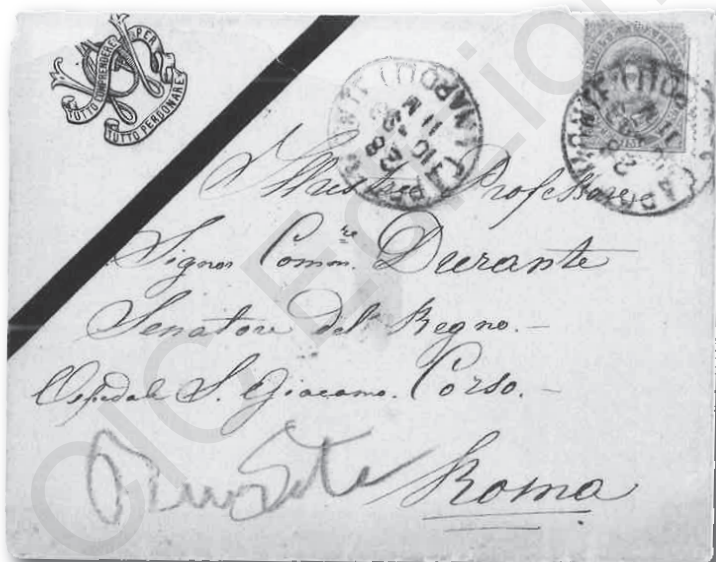 PER
TUTTO COMPRENDERE
TUTTO PERDONARE
NAPOLI
Illustre Professore
Signor Comm.re Durante
Senatore del Regno.-
Ospedale S. Giacomo. Corso.-
Roma
CIC Edizioni